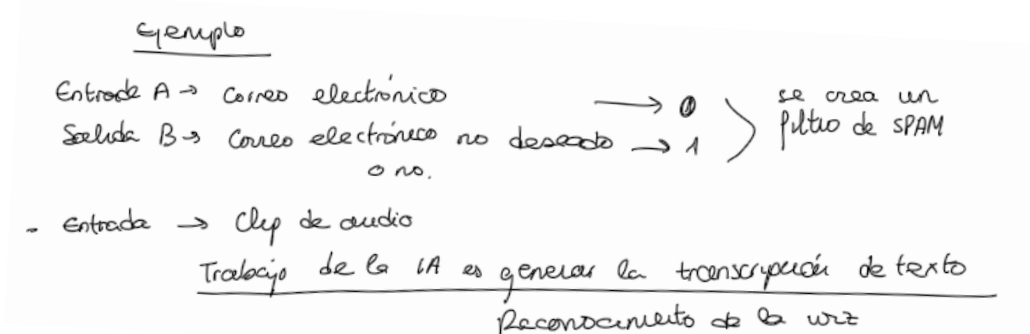 Ejemplo
Entrada A → Correo electrónico → 0
Salida B → Correo electrónico no deseado → 1
o no.
se crea un
filtro de SPAM
- Entrada → Clip de audio
Trabajo de la IA es generar la transcripción de texto
Reconocimiento de la voz